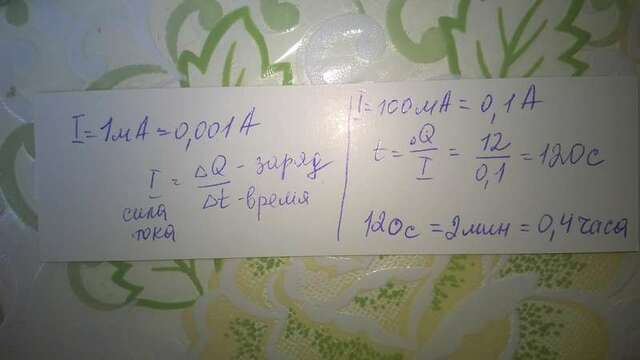 I = 1мА = 0,001 А
I = ΔQ - заряд / Δt - время
сила
тока
I = 100мА = 0,1 А
t = ΔQ / I = 12 / 0,1 = 120с
120с = 2мин = 0,4 часа